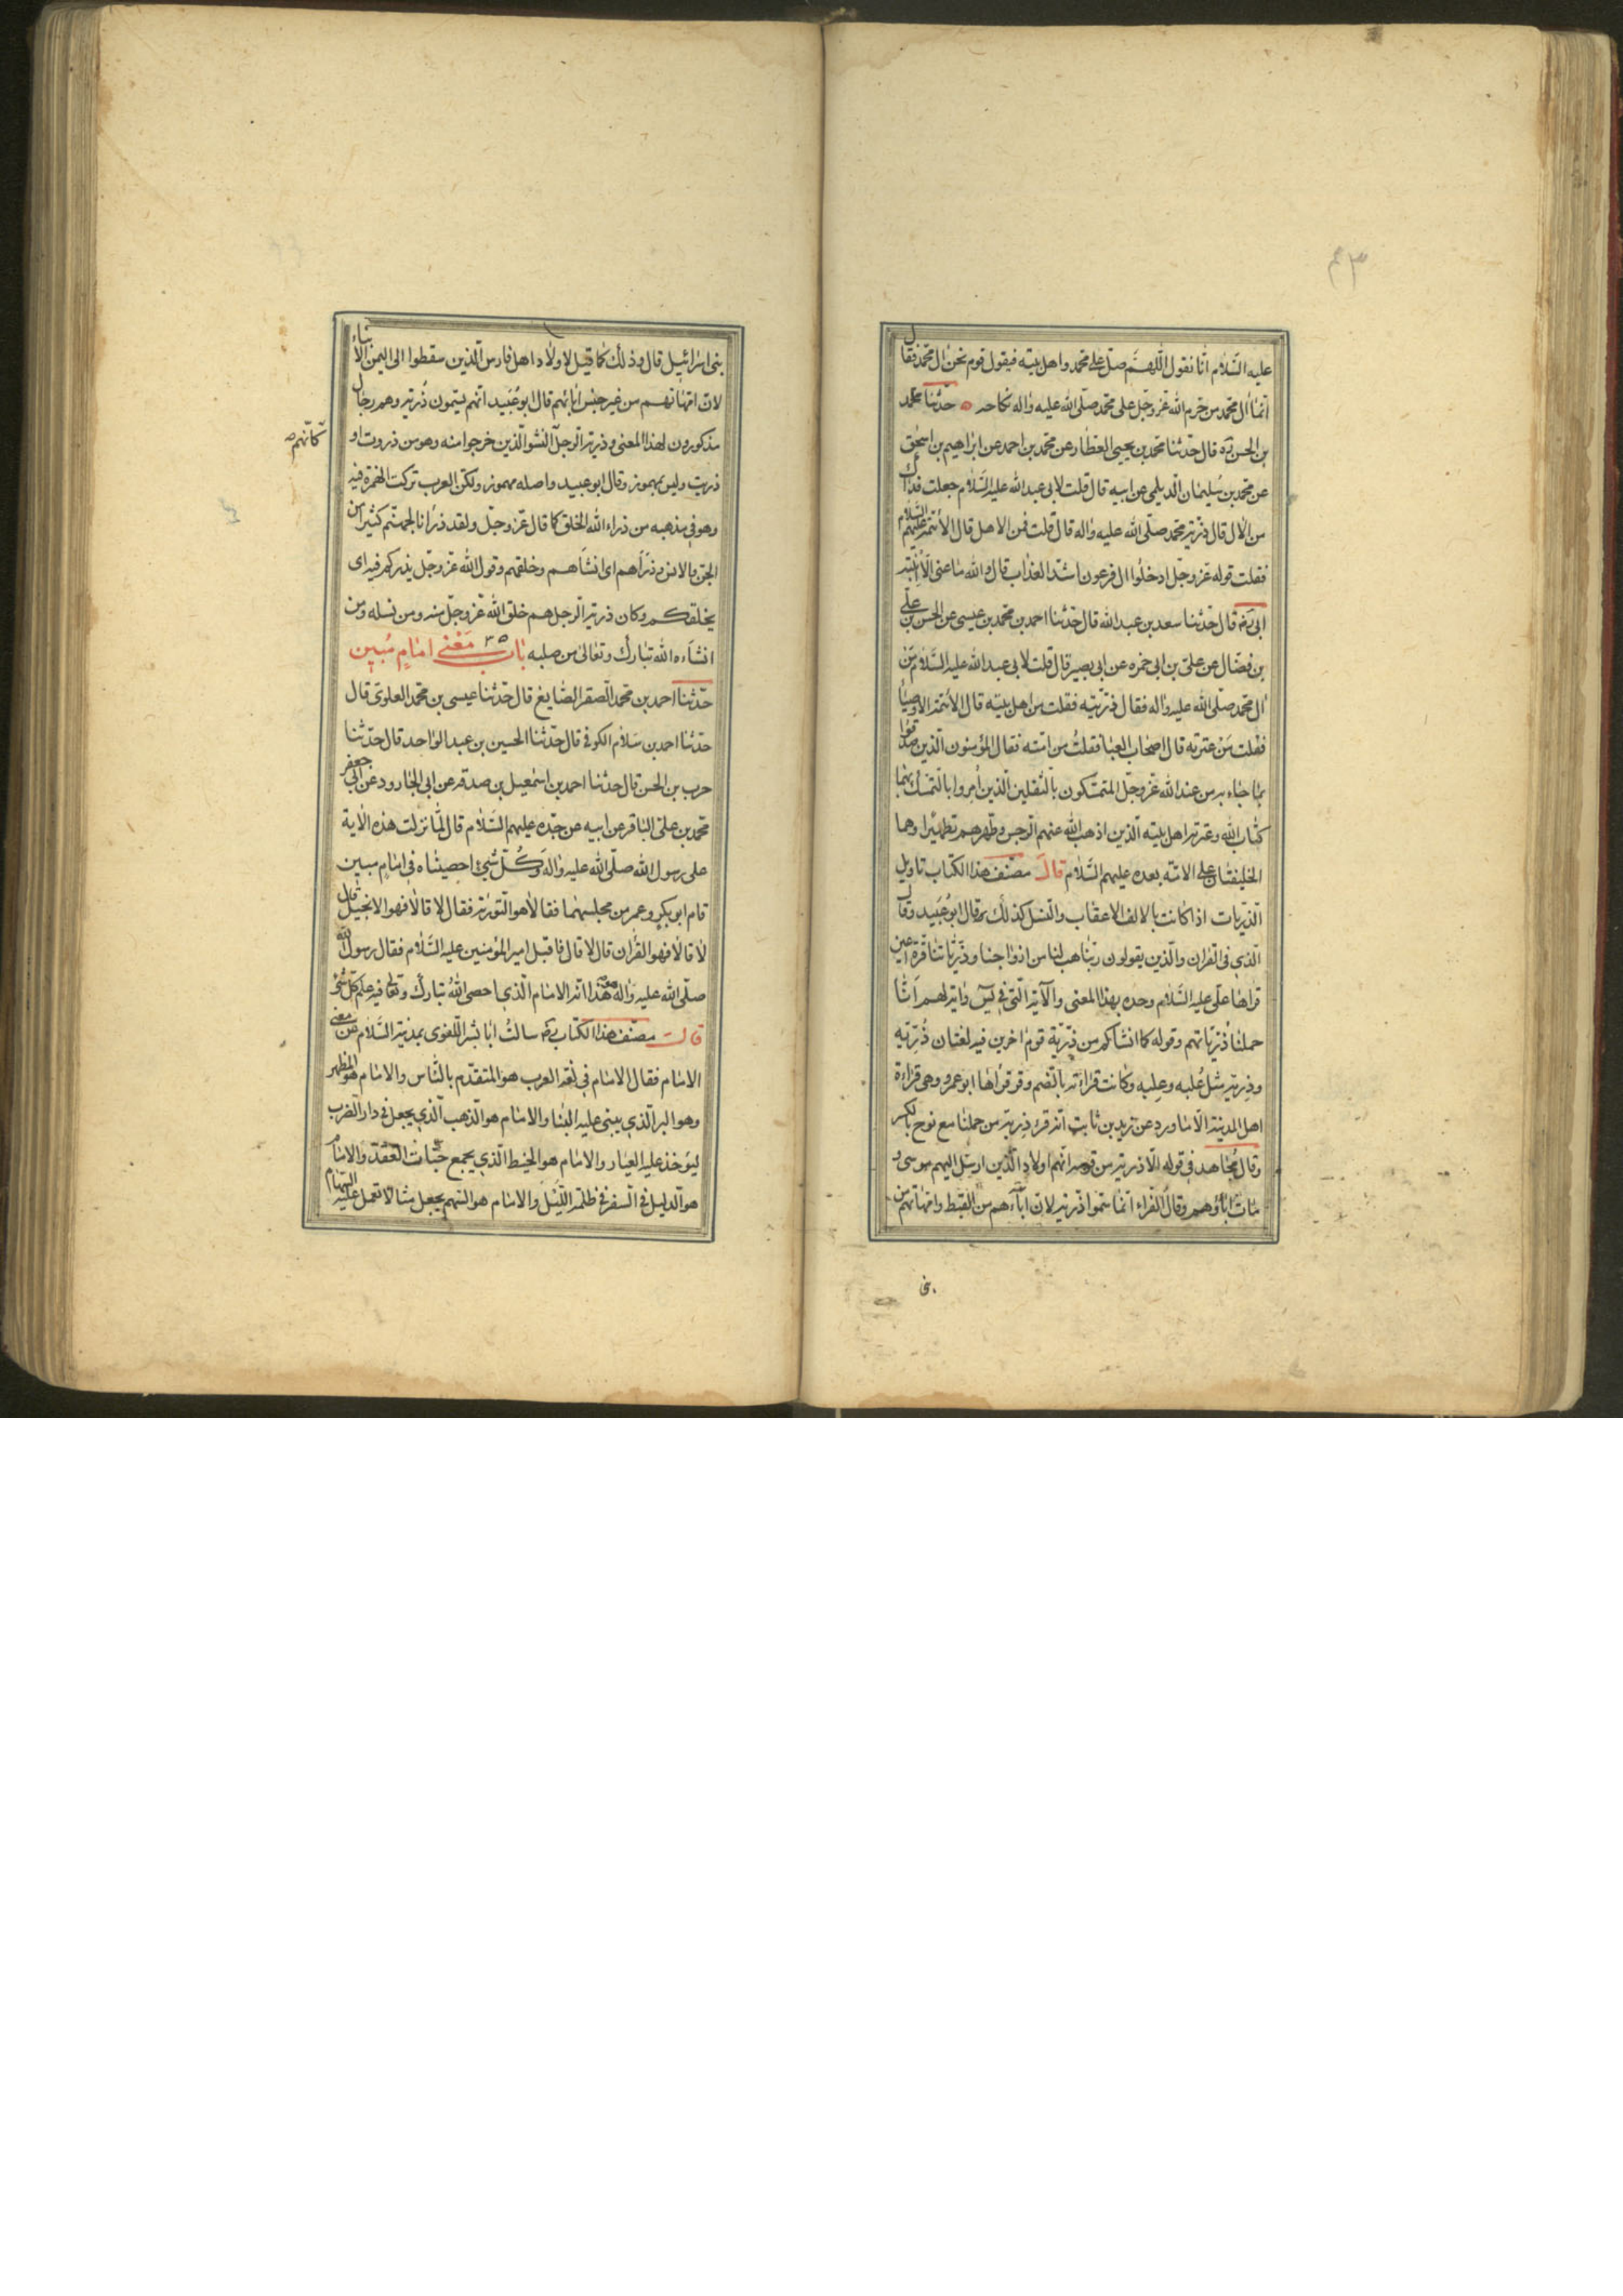 ۴۳
عليه السّلام انّا نقول اللّهمّ صلّ على محمّد واهل بيته فيقول قوم نحن ال محمّد فقال
انّما ال محمّد من حرم الله عزّ وجلّ على محمّد صلّى الله عليه واله نكاحه حدّثنا محمّد
بن الحسن ره قال حدّثنا محمّد بن يحيى العطّار عن محمّد بن احمد عن ابراهيم بن اسحق
عن محمّد بن سليمان الدّيلمى عن ابيه قال قلت لابى عبد الله عليه السّلام جعلت فداك
من الال قال ذرّية محمّد صلّى الله عليه واله قال قلت فمن الاهل قال الائمّة عليهم السّلام
فقلت قوله عزّ وجلّ ادخلوا ال فرعون اشدّ العذاب قال والله ما عنى الّا ابنته
ابى ره قال حدّثنا سعد بن عبد الله قال حدّثنا احمد بن محمّد بن عيسى عن الحسن بن على
بن فضّال عن على بن ابى حمزه عن ابى بصير قال قلت لابى عبد الله عليه السّلام من
ال محمّد صلّى الله عليه واله فقال ذرّيّته فقلت من اهل بيته قال الائمّة الاوصياء
فقلت من عترته قال اصحاب العبا فقلت من امّته فقال المؤمنون الّذين صدّقوا
بما جاء به من عند الله عزّ وجلّ المتمسّكون بالثّقلين الّذين اُمروا بالتّمسّك بهما
كتاب الله وعترته اهل بيته الّذين اذهب الله عنهم الرّجس وطهّرهم تطهيرا وهما
الخليفتان على الامّة بعده عليهم السّلام قال مصنّف هذا الكتاب تاويل
الذّرّيات اذا كانت بالالف الاعقاب والنّسل كذلك قال ابو عُبيد وقال
الّذى فى القران والّذين يقولون ربّنا هب لنا من ازواجنا وذرّيّاتنا قرّة اعين
قراها علّى عليه السّلام وحده بهذا المعنى والآية الّتى فى يس واية لهم انّا
حملنا ذرّيّاتهم وقوله كما انشاكم من ذرّيّة قوم اخرين فيه لغتان ذُرّيّه
وذِرّية مثل عُلبه وعِلبه وكانت قراءته بالضّم وقد قراها ابو عمرو وهى قراءة
اهل المدينة الّا ما ورد عن زيد بن ثابت انّه قرء ذِرّية من حملنا مع نوح بالكسر
وقال مجاهد فى قوله الّا ذرّية من قومه انّهم اولاد الّذين ارسل اليهم موسى و
مات اباؤهم وقال الفرّاء انّما سمّوا ذرّية لانّ اباءهم من القبط وامّهاتهم من
بنى
بنى اسرائيل قال وذلك كما قيل لاولاد اهل فارس الّذين سقطوا الى اليمن الابناء
لانّ امّهاتهم من غير جنس ابائهم قال ابو عُبيد انّهم يسمّون ذُرّية وهم رجال
مذكورون لهذا المعنى وذرّية الرّجل النّشو الّذين خرجوا منه وهو من ذروت او
كانّهم
ذريت وليس بمهموز وقال ابو عبيد واصله مهموز ولكن العرب تركت الهمزة فيه
وهو فى مذهبه من ذراء الله الخلق كما قال عزّ وجلّ ولقد ذرانا لجهنّم كثيرا من
الجن والانس وذرَاهم اى انشاهم وخلقهم وقول الله عزّ وجلّ يذركم فيه اى
يخلقكم وكان ذرّية الرّجل هم خلق الله عزّ وجلّ منه ومن نسله ومن
انشاءه الله تبارك وتعالى من صلبه باب ۳۵ مَعْنى امامٍ مُبين
حدّثنا احمد بن محمّد الصّقر الصّايغ قال حدّثنا عيسى بن محمّد العلوى قال
حدّثنا احمد بن سلام الكوفى قال حدّثنا الحسين بن عبد الواحد قال حدّثنا
حرب بن الحسن قال حدثنا احمد بن اسمعيل بن صدقة عن ابى الجارود عن ابى جعفر
محمّد بن على الباقر عن ابيه عن جدّه عليهم السّلام قال لمّا نزلت هذه الاية
على رسول الله صلّى الله عليه واله وَكُلّ شيء احصيناه فى امام مبين
قام ابو بكر وعمر من مجلسهما فقالا هو التّوراة فقال لا قالا فهو الانجيل قال
لا قالا فهو القران قال لا قال فاقبل امير المؤمنين عليه السّلام فقال رسول الله
صلّى الله عليه واله هو هذا انّه الامام الّذى احصى اللهُ تبارك وتعالى فيه علم كلّ شئ
قال مصنّف هذا الكتاب ره سالت ابا بشر اللّغوى بمدينة السّلام عن معنى
الامام فقال الامام فى لغة العرب هو المتقدّم بالنّاس والامام هو المطهر
وهو البر الّذى يبنى عليه البنا والامام هو الذهب الّذى يجعل فى دار الضّرب
ليؤخذ عليه العيار والامام هو الخيط الّذى يجمع حبّات العقد والامام
هو الدليل فى السّفر فى ظلمة اللّيل والامام هو السّهم يجعل مثالا تعمل عليه السّهام